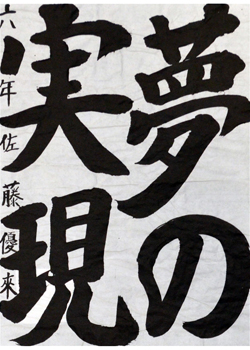 夢の
実現
六年佐藤優来